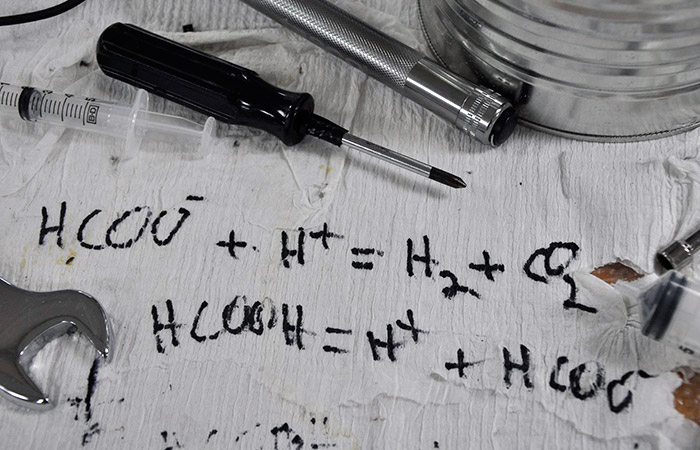 HCOO⁻ + H⁺ = H₂ + CO₂
HCOOH = H⁺ + HCOO⁻